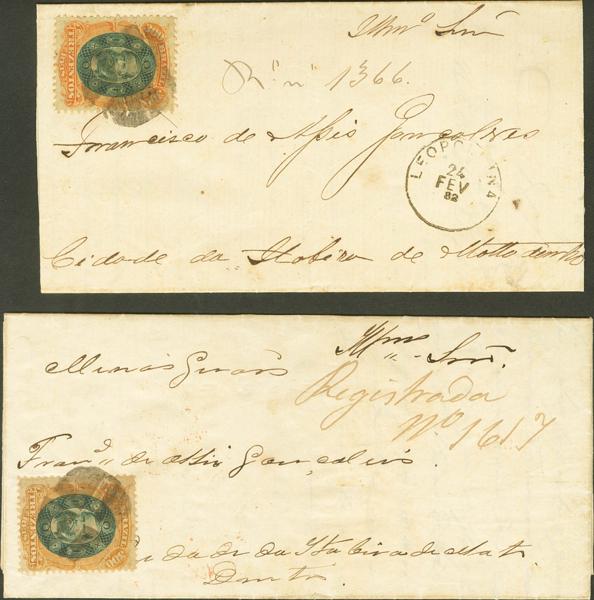 Illmo Snr
R. n 1366.
Francisco de Assis Gonçalves
LEOPOLDINA
24
FEV
82
Cidade da Itabira de Matto dentro
TREZENTOS
Illmo Snr.
Minas Geraes
Registrada
No 1617
Franco de Assis Gonçalves.
TREZENTOS
Cidade da Itabira de Matto
Dentro